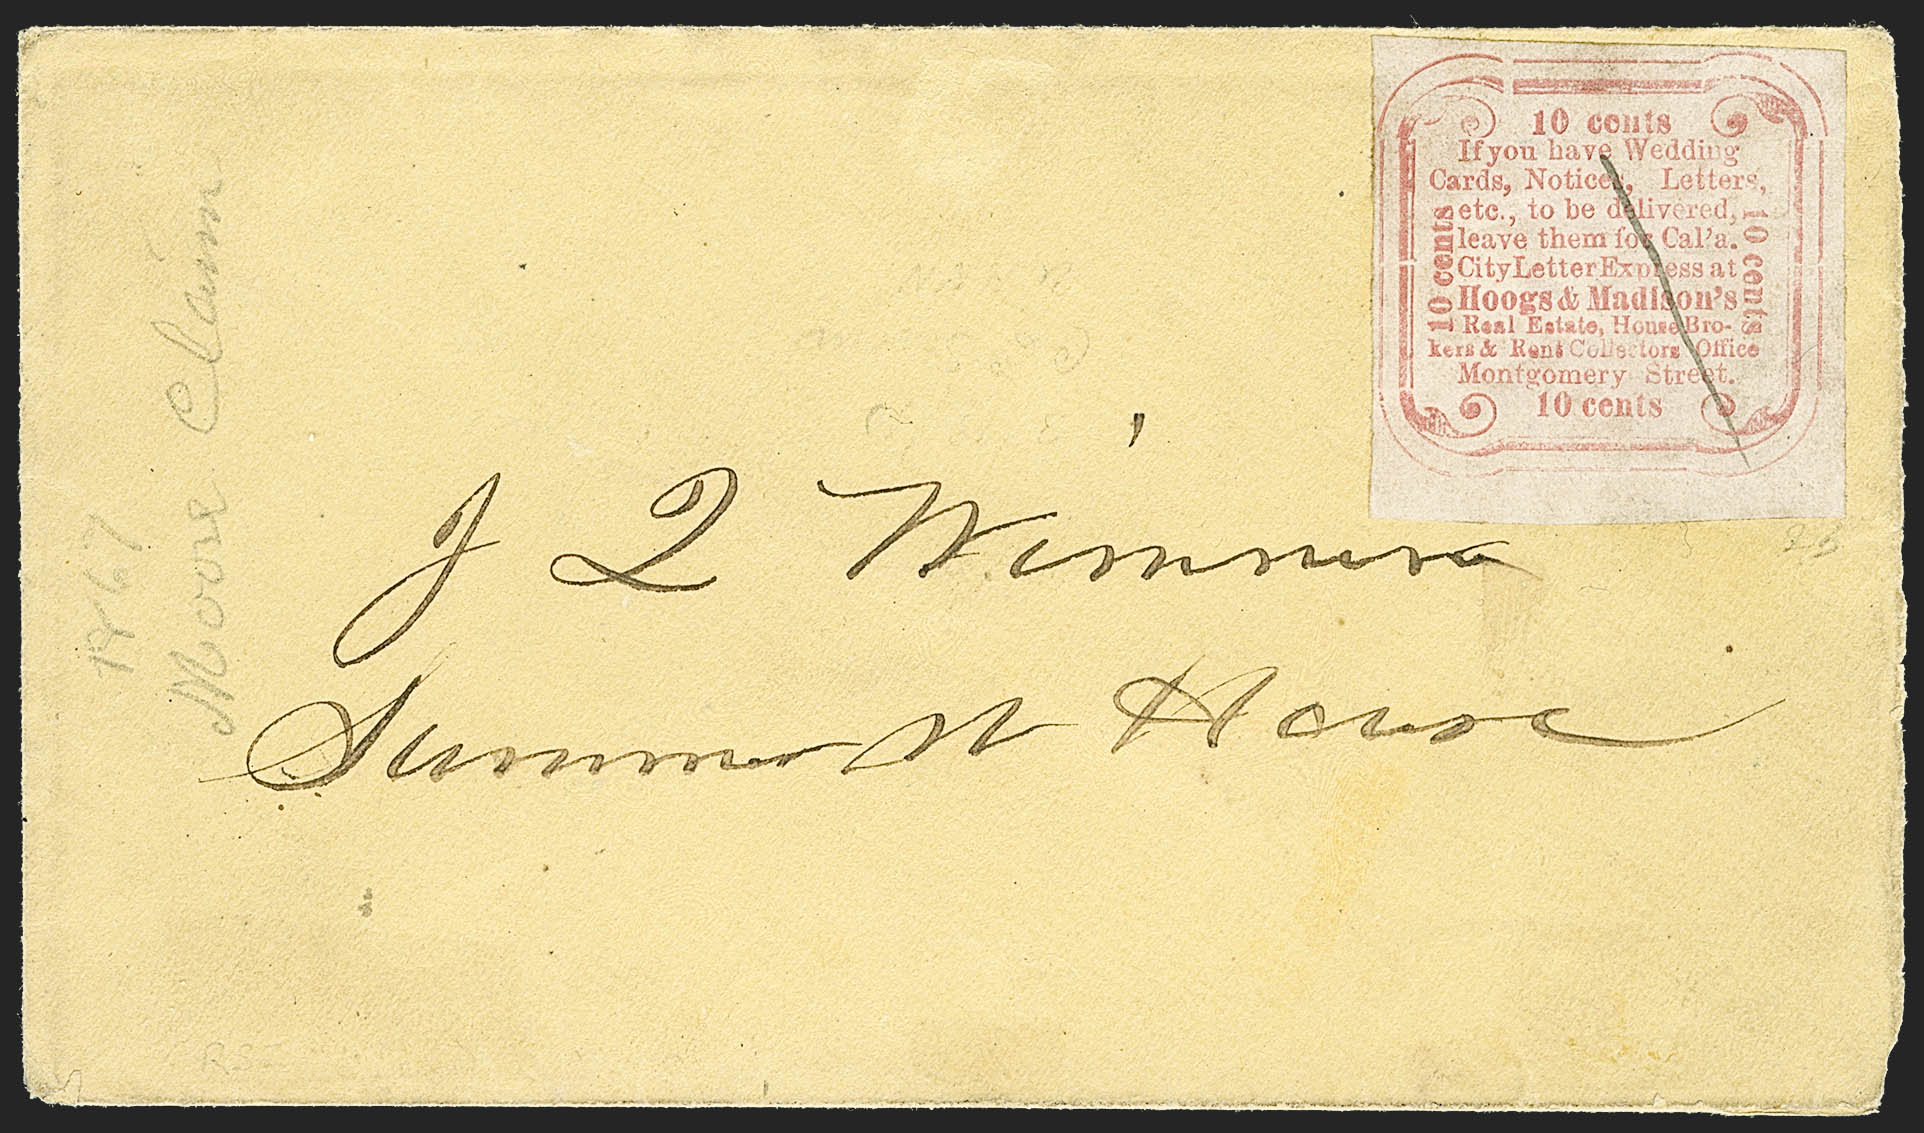 10 cents
If you have Wedding
Cards, Notices, Letters,
etc., to be delivered,
leave them for Cal'a.
City Letter Express at
Hoogs & Madison's
Real Estate, House Bro-
kers & Rent Collectors Office
Montgomery Street.
10 cents
10 cents
10 cents
J Q Winans
Summit House
1867
Moore Claim